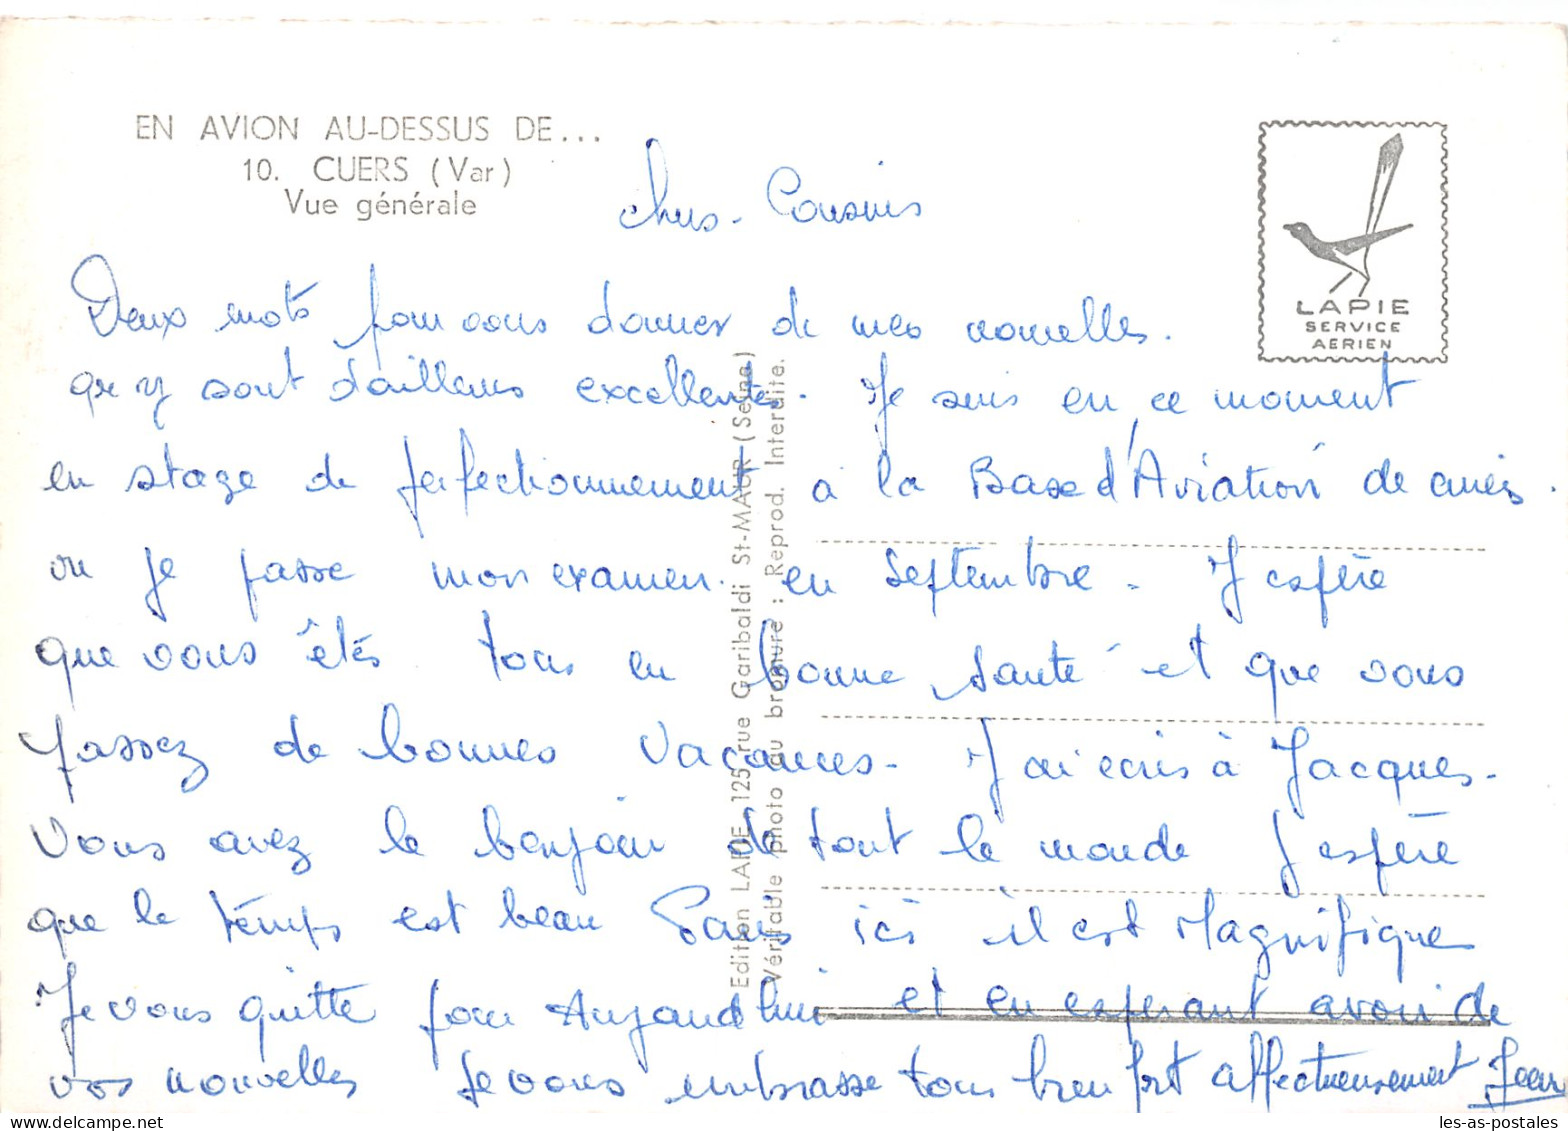 EN AVION AU-DESSUS DE...
10. CUERS (Var)
Vue générale
LAPIE
SERVICE
AERIEN
chers - Cousins
Deux mots pour vous donner de mes nouvelles.
qui y sont d'ailleurs excellentes. Je suis en ce moment
en stage de perfectionnement à la Base d'Aviation de cuers.
ou je passe mon examen en septembre - J espère
que vous êtes tous en bonne santé et que vous
passez de bonnes vacances - J ai ecris à Jacques -
Vous avez le bonjour de tout le monde J espère
que le temps est beau Paris ici il est Magnifique
Je vous quitte pour Aujourd hui et en esperant avoir de
vos nouvelles Je vous embrasse tous bien fort affectueusement Jean
Edition LAPIE 125, rue Garibaldi St-MAUR (Seine)
Véritable photo au bromure : Reprod. Interdite.
les-as-postales